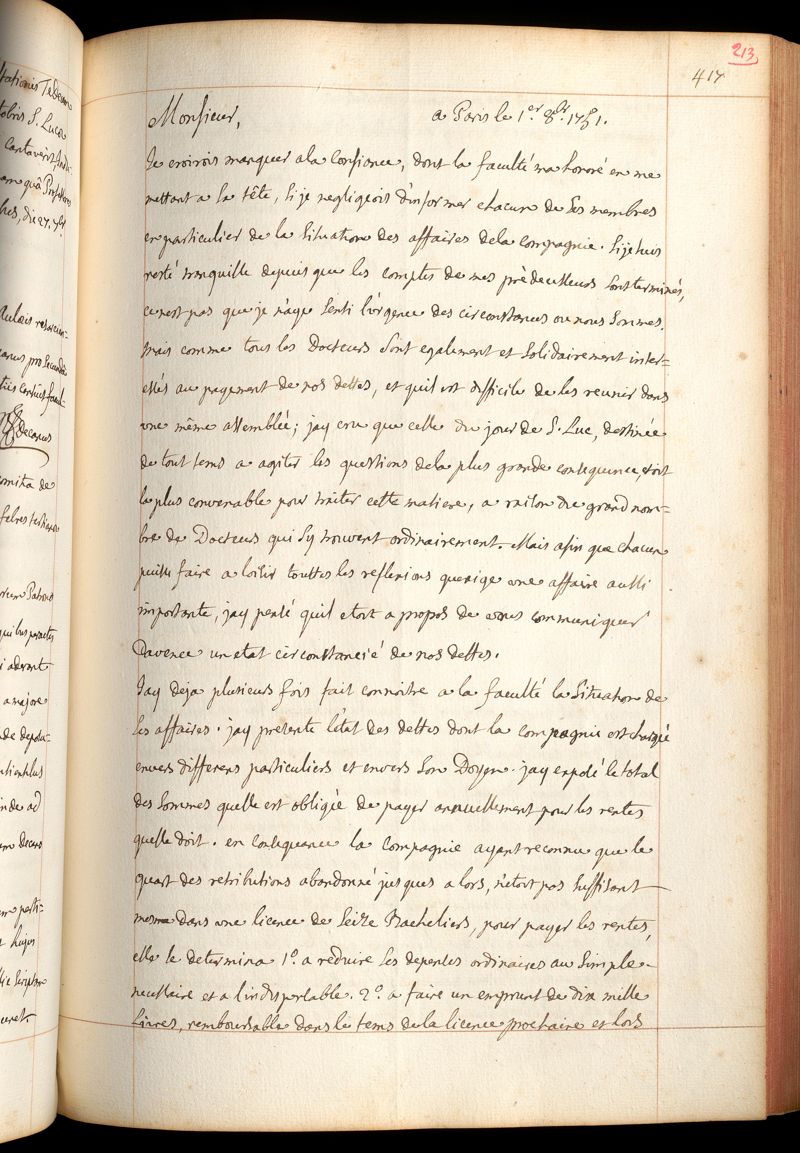 213
417
Monsieur,
a Paris le 1.er 8.bre 1751.
Je croirois manquer a la Confiance, dont la faculté ma honoré en me
mettant a sa tête, si je negligeois d'informer chacun de ses membres
en particulier de la situation des affaires dela compagnie. si je suis
resté tranquille depuis que les comptes de mes prédecesseurs sont terminés,
ce nest pas que je n'aye senti l'urgence des circonstances ou nous sommes.
mais comme tous les Docteurs sont egalement et solidairement inter=
essés au payement de nos dettes, et quil est difficile de les reunir dans
une même assemblée; jay cru que celle du jour de S. Luc, destinée
de tout tems a agiter les questions dela plus grande consequence, etoit
la plus convenable pour traiter cette matiere, a raison du grand nom=
bre de Docteurs qui sy trouvent ordinairement. Mais afin que chacun
puisse faire a loisir touttes les reflexions quexige une affaire aussi
importante, jay pensé quil etoit a propos de vous communiquer
Davence un etat circonstancié de nos dettes.
Jay deja plusieurs fois fait connoitre a la faculté la situation de
ses affaires. jay presenté l'état des dettes dont la compagnie est chargée
envers differens particuliers et envers son Doyen. jay exposé le total
des sommes quelle est obligée de payer annuellement pour les rentes
quelle doit. en consequence la compagnie ayant reconnu que le
quart des retributions abandonné jusques alors, n'étoit pas suffisant
mesme dans une licence de seize Bacheliers, pour payer les rentes,
elle se determina 1.° a reduire ses depenses ordinaires au simple
necessaire et a l'indispensable. 2.° a faire un emprunt de dix mille
Livres, remboursable dans le tems de la licence prochaine et lors
tobris S. Luca
decanus